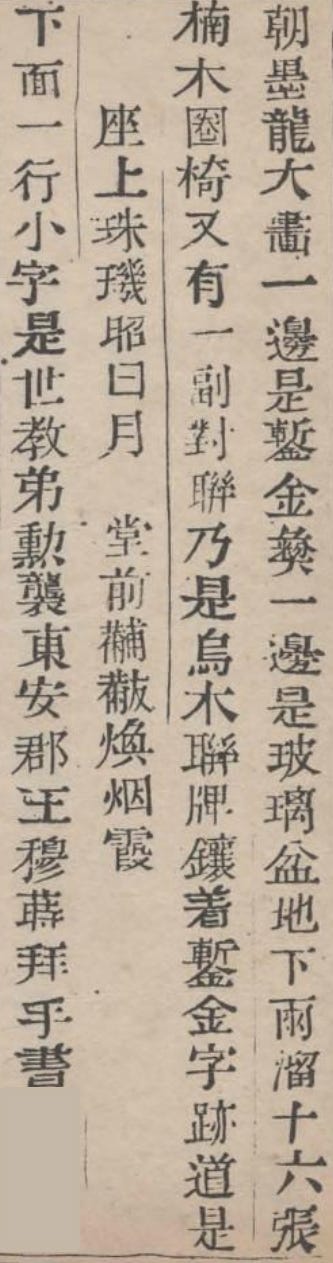 朝墨龍大畵一邊是鏨金彝一邊是玻璃盆地下兩溜十六張
楠木圈椅又有一副對聯乃是烏木聯牌鑲着鏨金字跡道是
座上珠璣昭日月　堂前黼黻煥烟霞
下面一行小字是世教弟勳襲東安郡王穆蒔拜手書